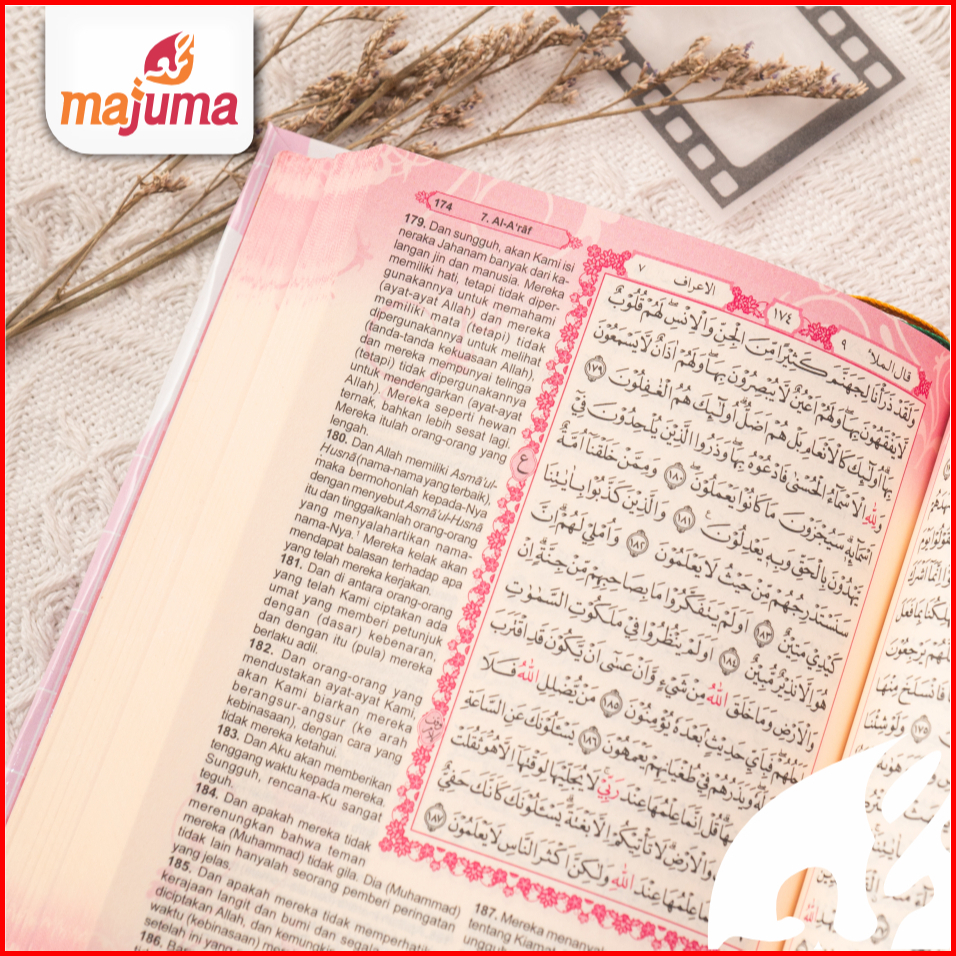 majuma
174 7. Al-A'râf
179. Dan sungguh, akan Kami isi
neraka Jahanam banyak dari ka-
langan jin dan manusia. Mereka
memiliki hati, tetapi tidak diper-
gunakannya untuk memahami
(ayat-ayat Allah) dan mereka
memiliki mata (tetapi) tidak
dipergunakannya untuk melihat
(tanda-tanda kekuasaan Allah),
dan mereka mempunyai telinga
(tetapi) tidak dipergunakannya
untuk mendengarkan (ayat-ayat
Allah). Mereka seperti hewan
ternak, bahkan lebih sesat lagi.
Mereka itulah orang-orang yang
lengah.
180. Dan Allah memiliki Asmâ'ul-
Husnâ (nama-nama yang terbaik),
maka bermohonlah kepada-Nya
dengan menyebut Asmâ'ul-Husnâ
itu dan tinggalkanlah orang-orang
yang menyalahartikan nama-
nama-Nya.¹ Mereka kelak akan
mendapat balasan terhadap apa
yang telah mereka kerjakan.
181. Dan di antara orang-orang
yang telah Kami ciptakan ada
umat yang memberi petunjuk
dengan (dasar) kebenaran,
dan dengan itu (pula) mereka
berlaku adil.
182. Dan orang-orang yang
mendustakan ayat-ayat Kami,
akan Kami biarkan mereka
berangsur-angsur (ke arah
kebinasaan), dengan cara yang
tidak mereka ketahui.
183. Dan Aku akan memberikan
tenggang waktu kepada mereka.
Sungguh, rencana-Ku sangat
teguh.
184. Dan apakah mereka tidak
merenungkan bahwa teman
mereka (Muhammad) tidak gila. Dia (Muhammad)
tidak lain hanyalah seorang pemberi peringatan
yang jelas.
185. Dan apakah mereka tidak memperhatikan
kerajaan langit dan bumi dan segala
diciptakan Allah, dan kemungkinan
waktu (kebinasaan)
setelah ini yang
186.
187. Mereka menanya
tentang Kiamat
قال الملأ ٩ ١٧٤ الاعراف ٧
وَلَقَدْ ذَرَأْنَا لِجَهَنَّمَ كَثِيْرًا مِّنَ الْجِنِّ وَالْاِنْسِۖ لَهُمْ قُلُوْبٌ
لَّا يَفْقَهُوْنَ بِهَاۖ وَلَهُمْ اَعْيُنٌ لَّا يُبْصِرُوْنَ بِهَاۖ وَلَهُمْ اٰذَانٌ لَّا يَسْمَعُوْنَ
بِهَاۗ اُولٰۤىِٕكَ كَالْاَنْعَامِ بَلْ هُمْ اَضَلُّۗ اُولٰۤىِٕكَ هُمُ الْغٰفِلُوْنَ ١٧٩
وَلِلّٰهِ الْاَسْمَاۤءُ الْحُسْنٰى فَادْعُوْهُ بِهَاۖ وَذَرُوا الَّذِيْنَ يُلْحِدُوْنَ فِيْٓ
اَسْمَاۤىِٕهٖۗ سَيُجْزَوْنَ مَا كَانُوْا يَعْمَلُوْنَ ١٨٠ وَمِمَّنْ خَلَقْنَآ اُمَّةٌ
يَّهْدُوْنَ بِالْحَقِّ وَبِهٖ يَعْدِلُوْنَ ١٨١ وَالَّذِيْنَ كَذَّبُوْا بِاٰيٰتِنَا
سَنَسْتَدْرِجُهُمْ مِّنْ حَيْثُ لَا يَعْلَمُوْنَ ١٨٢ وَاُمْلِيْ لَهُمْۗ اِنَّ
كَيْدِيْ مَتِيْنٌ ١٨٣ اَوَلَمْ يَتَفَكَّرُوْا مَا بِصَاحِبِهِمْ مِّنْ جِنَّةٍۗ اِنْ
هُوَ اِلَّا نَذِيْرٌ مُّبِيْنٌ ١٨٤ اَوَلَمْ يَنْظُرُوْا فِيْ مَلَكُوْتِ السَّمٰوٰتِ
وَالْاَرْضِ وَمَا خَلَقَ اللّٰهُ مِنْ شَيْءٍ وَّاَنْ عَسٰٓى اَنْ يَّكُوْنَ قَدِ اقْتَرَبَ
اَجَلُهُمْ فَبِاَيِّ حَدِيْثٍۢ بَعْدَهٗ يُؤْمِنُوْنَ ١٨٥ مَنْ يُّضْلِلِ اللّٰهُ فَلَا
لَهٗ وَيَذَرُهُمْ فِيْ طُغْيَانِهِمْ يَعْمَهُوْنَ ١٨٦ يَسْـَٔلُوْنَكَ عَنِ السَّاعَةِ
قُلْ اِنَّمَا عِلْمُهَا عِنْدَ رَبِّيْ لَا يُجَلِّيْهَا لِوَقْتِهَآ اِلَّا هُوَۗ ثَقُلَتْ
وَالْاَرْضِۗ لَا تَأْتِيْكُمْ اِلَّا بَغْتَةًۗ يَسْـَٔلُوْنَكَ كَاَنَّكَ حَفِيٌّ
عِلْمُهَا عِنْدَ اللّٰهِ وَلٰكِنَّ اَكْثَرَ النَّاسِ لَا يَعْلَمُوْنَ ١٨٧
ع